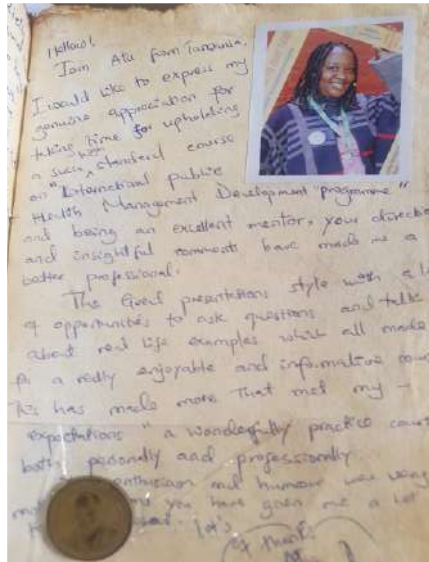 Hellow!,
I am Ale from Tanzania.
I would like to express my
genuine appreciation for
taking time for upholding
a such high standard course
on "International public
Health Management Development programme"
and being an excellent mentor, your
and insightful comments have made me a
better professional.
The Great presentations style with a
of opportunities to ask questions and talk
about real life examples which all made
a really enjoyable and informative
This has made more That met my -
expectations " a wonderfully practice
both personally and professionally
enthusiasm and humour was very
you have given me a lot